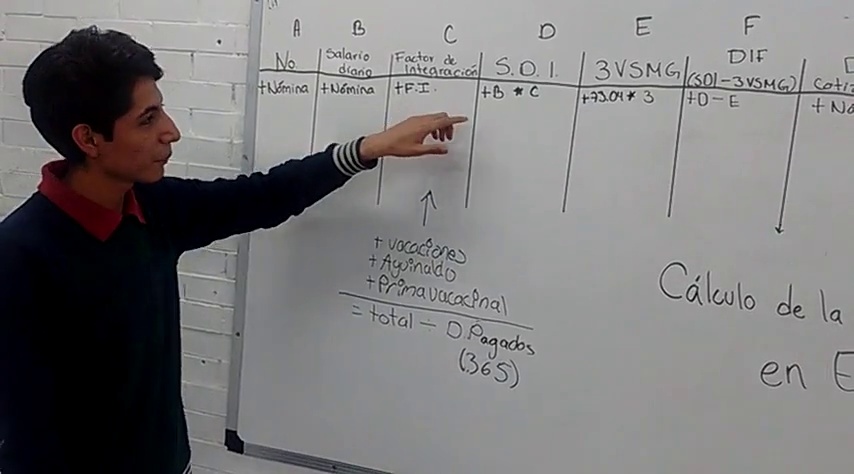 A B C D E F
No. Salario diario Factor de integración S.D.I. 3VSMG DIF (SDI-3VSMG)
+Nómina +Nómina +F.I. +B * C +73.04 * 3 +D-E
+ vacaciones
+ Aguinaldo
+ Prima vacacional
= total ÷ D. Pagados
(365)
Cálculo de la
en